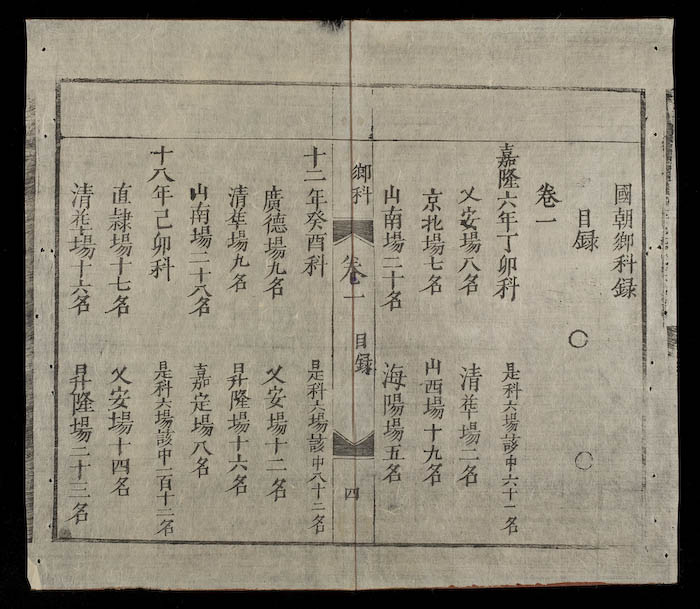 國朝鄉科錄
目錄
卷一
嘉隆六年丁卯科 是科六場該中六十一名
乂安場八名 清華場二名
京北場七名 山西場十九名
山南場二十名 海陽場五名
鄉科 卷一 目錄 四
十二年癸酉科 是科六場該中八十二名
廣德場九名 乂安場十二名
清華場九名 昇隆場十六名
山南場二十八名 嘉定場八名
十八年己卯科 是科六場該中一百十二名
直隷場十七名 乂安場十四名
清華場十六名 昇隆場二十三名